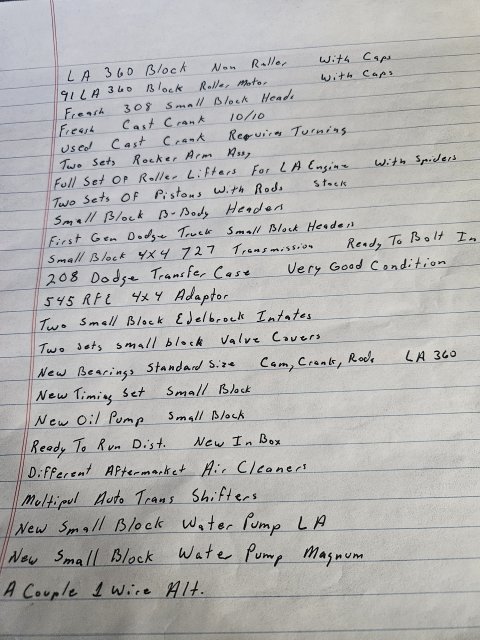 LA 360 Block Non Roller With Caps
91 LA 360 Block Roller Motor With Caps
Freash 308 Small Block Heads
Freash Cast Crank 10/10
Used Cast Crank Requires Turning
Two Sets Rocker Arm Assy
Full Set Of Roller Lifters For LA Engine With Spiders
Two Sets Of Pistons With Rods Stock
Small Block B-Body Headers
First Gen Dodge Truck Small Block Headers
Small Block 4x4 727 Transmission Ready To Bolt In
208 Dodge Transfer Case Very Good Condition
545 RFE 4x4 Adaptor
Two Small Block Edelbrock Intates
Two Sets small block Valve Covers
New Bearings Standard Size Cam, Crank, Rods LA 360
New Timing Set Small Block
New Oil Pump Small Block
Ready To Run Dist. New In Box
Different Aftermarket Air Cleaners
Multipul Auto Trans Shifters
New Small Block Water Pump LA
New Small Block Water Pump Magnum
A Couple 1 Wire Alt.